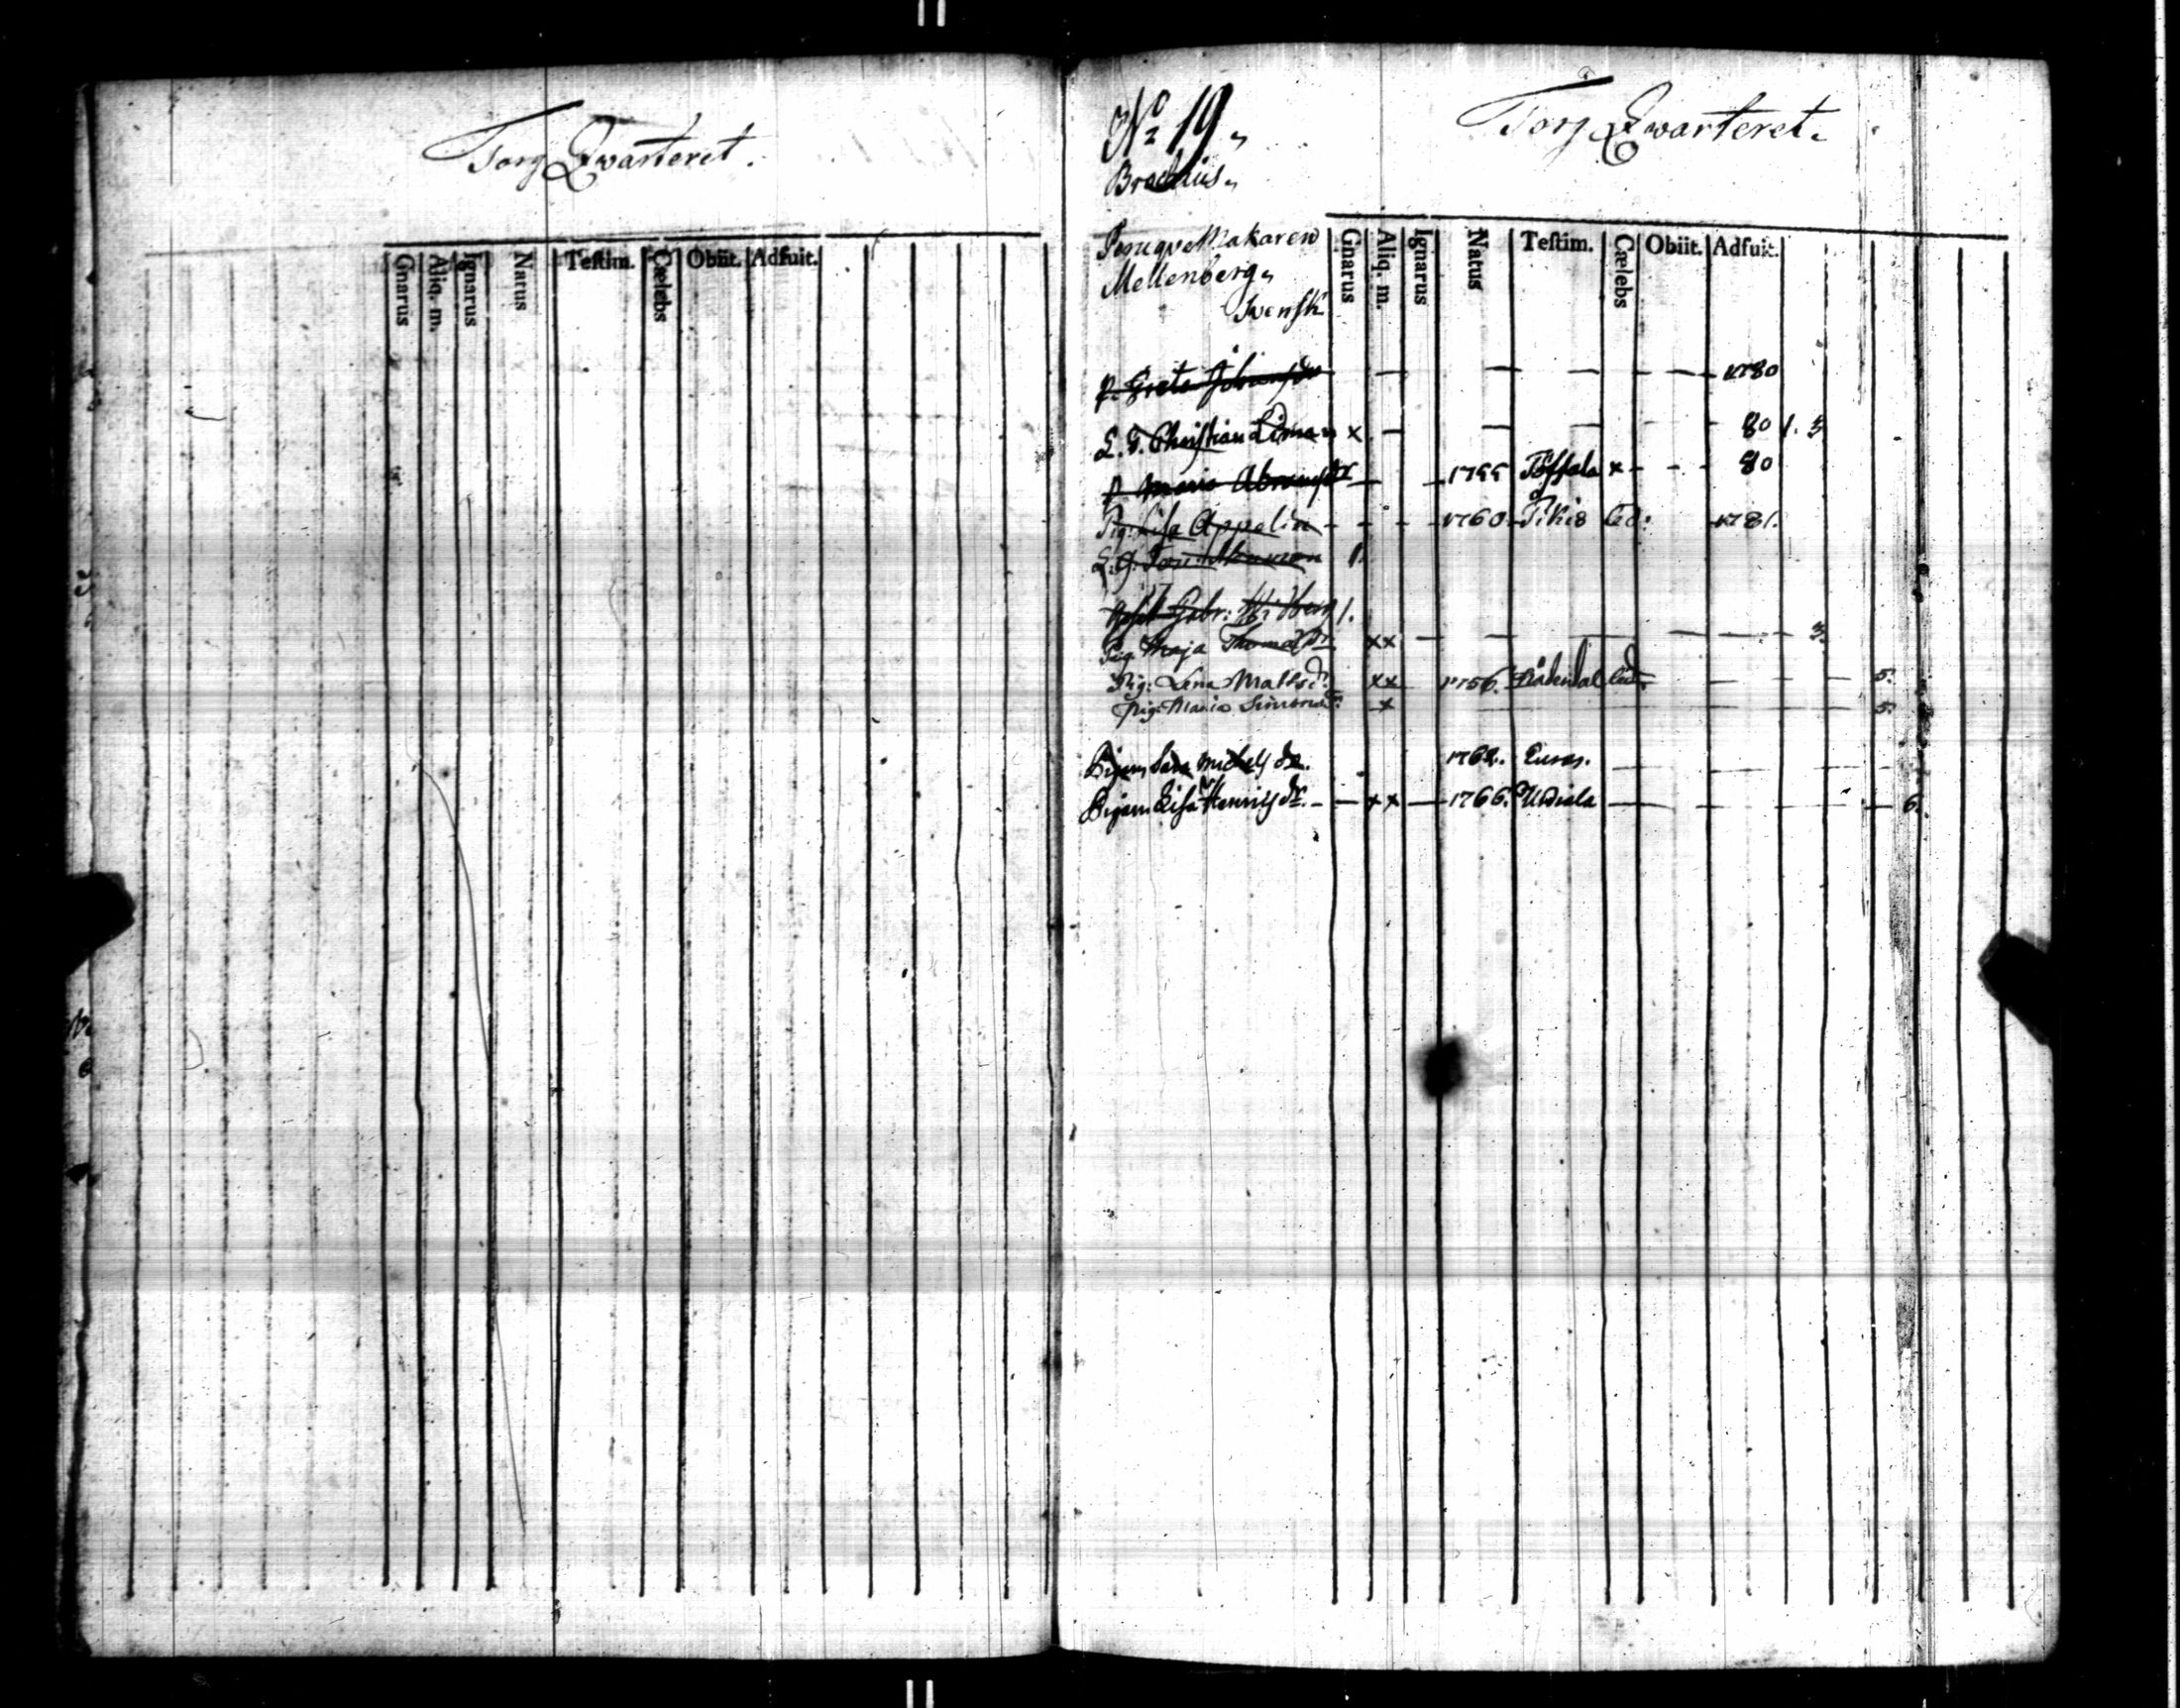 Torg Qvarteret.
Gnarus Aliq. m. Ignarus Natus Testim. Cælebs Obiit. Adfuit.
No 19.
Torg Qvarteret.
Brodius.
PeruqveMakaren
Mellenberg.
Swensk
Gnarus Aliq. m. Ignarus Natus Testim. Cælebs Obiit. Adfuit.
p. Greta — — — — — 1780
L. G. Christian Liman x — — — — 80 1. 3
p Maria Abramsdr — — 1755 Töffsala x - - - 80
Pig: Lisa Appelin - - - 1760 Pikis led: 1781.
L. G. 1.
Gabr: Widberg 1.
Pig Maja Thomasdr xx — — — — — 3.
Pig: Lena Mattsdr xx 1756. Nådendal led. — — — 5.
Pig: Maria Simonsdr: x — 5.
Pigan Sara Michelsdr. 1762. Eura.
Pigan Lisa Henrichsdr. — xx — 1766. Urdiala — — 6.